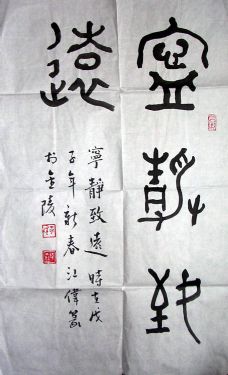 寧靜致
遠
寧靜致遠 時在戊
子年新春江偉篆
於金陵